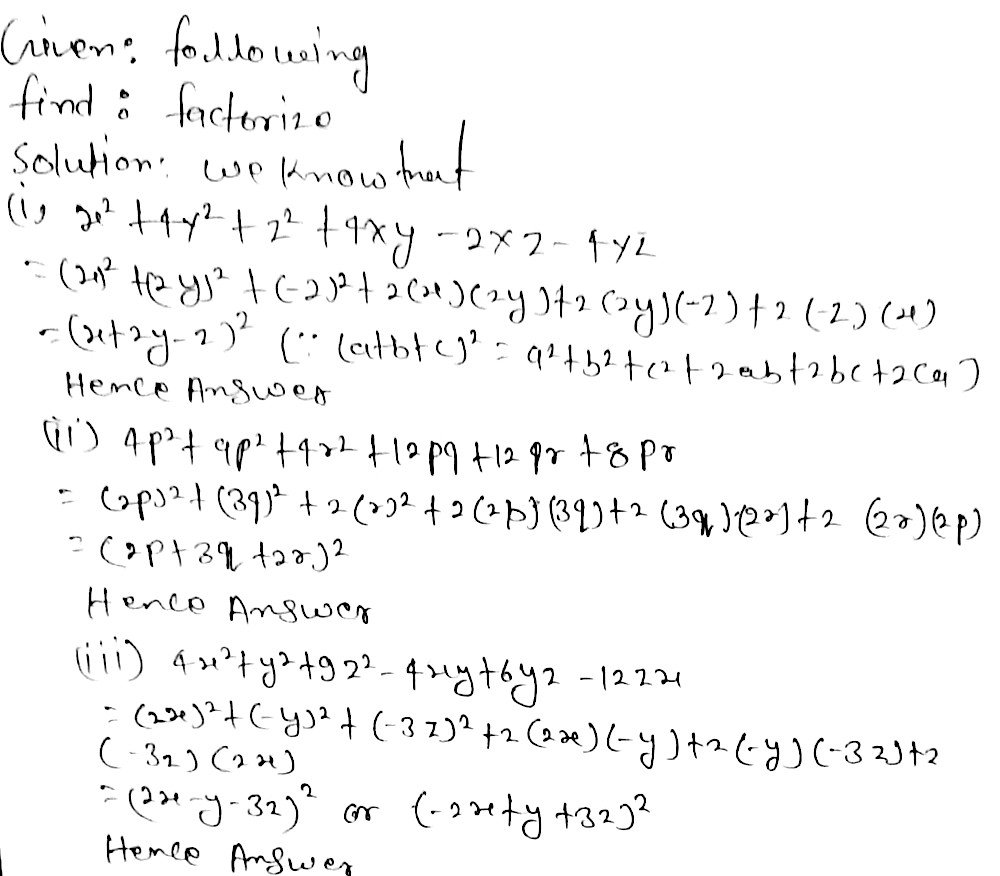 Given: following
find : factorize
Solution: we know that
(i) x² + 4y² + z² + 4xy - 2xz - 4yz
= (x)² + (2y)² + (-z)² + 2(x)(2y) + 2(2y)(-z) + 2(-z)(x)
= (x+2y-z)² (∵ (a+b+c)² = a²+b²+c²+2ab+2bc+2ca)
Hence Answer
(ii) 4p² + 9p² + 4r² + 12pq + 12qr + 8pr
= (2p)² + (3q)² + 2(r)² + 2(2p)(3q) + 2(3q)(2r) + 2 (2r)(2p)
= (2p+3q+2r)²
Hence Answer
(iii) 4x²+y²+9z²-4xy+6yz-12zx
= (2x)²+(-y)²+(-3z)²+2(2x)(-y)+2(-y)(-3z)+2
(-3z)(2x)
= (2x-y-3z)² or (-2x+y+3z)²
Hence Answer